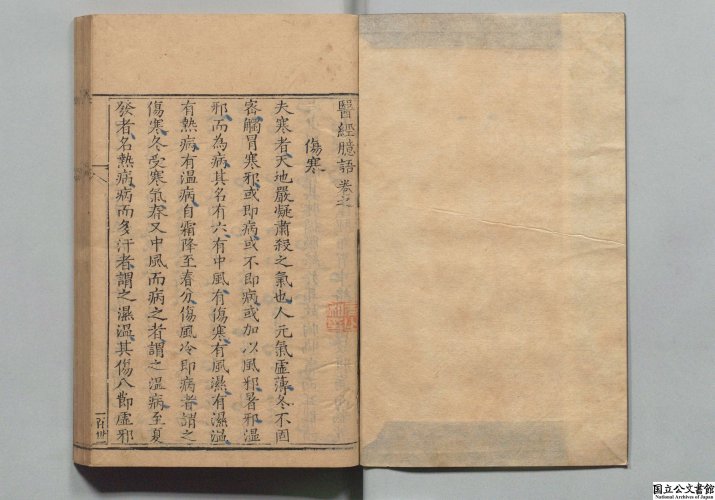 醫經臆語 卷之
傷寒
夫寒者天地嚴凝肅殺之氣也人元氣虛薄冬不固
密觸冒寒邪或即病或不即病或加以風邪暑邪濕
邪而為病其名有六有中風有傷寒有風濕有濕溫
有熱病有溫病自霜降至春分傷風冷即病者謂之
傷寒冬受寒氣春又中風而病之者謂之溫病至夏
發者名熱病病而多汗者謂之濕溫其傷八節虛邪
国立公文書館
National Archives of Japan